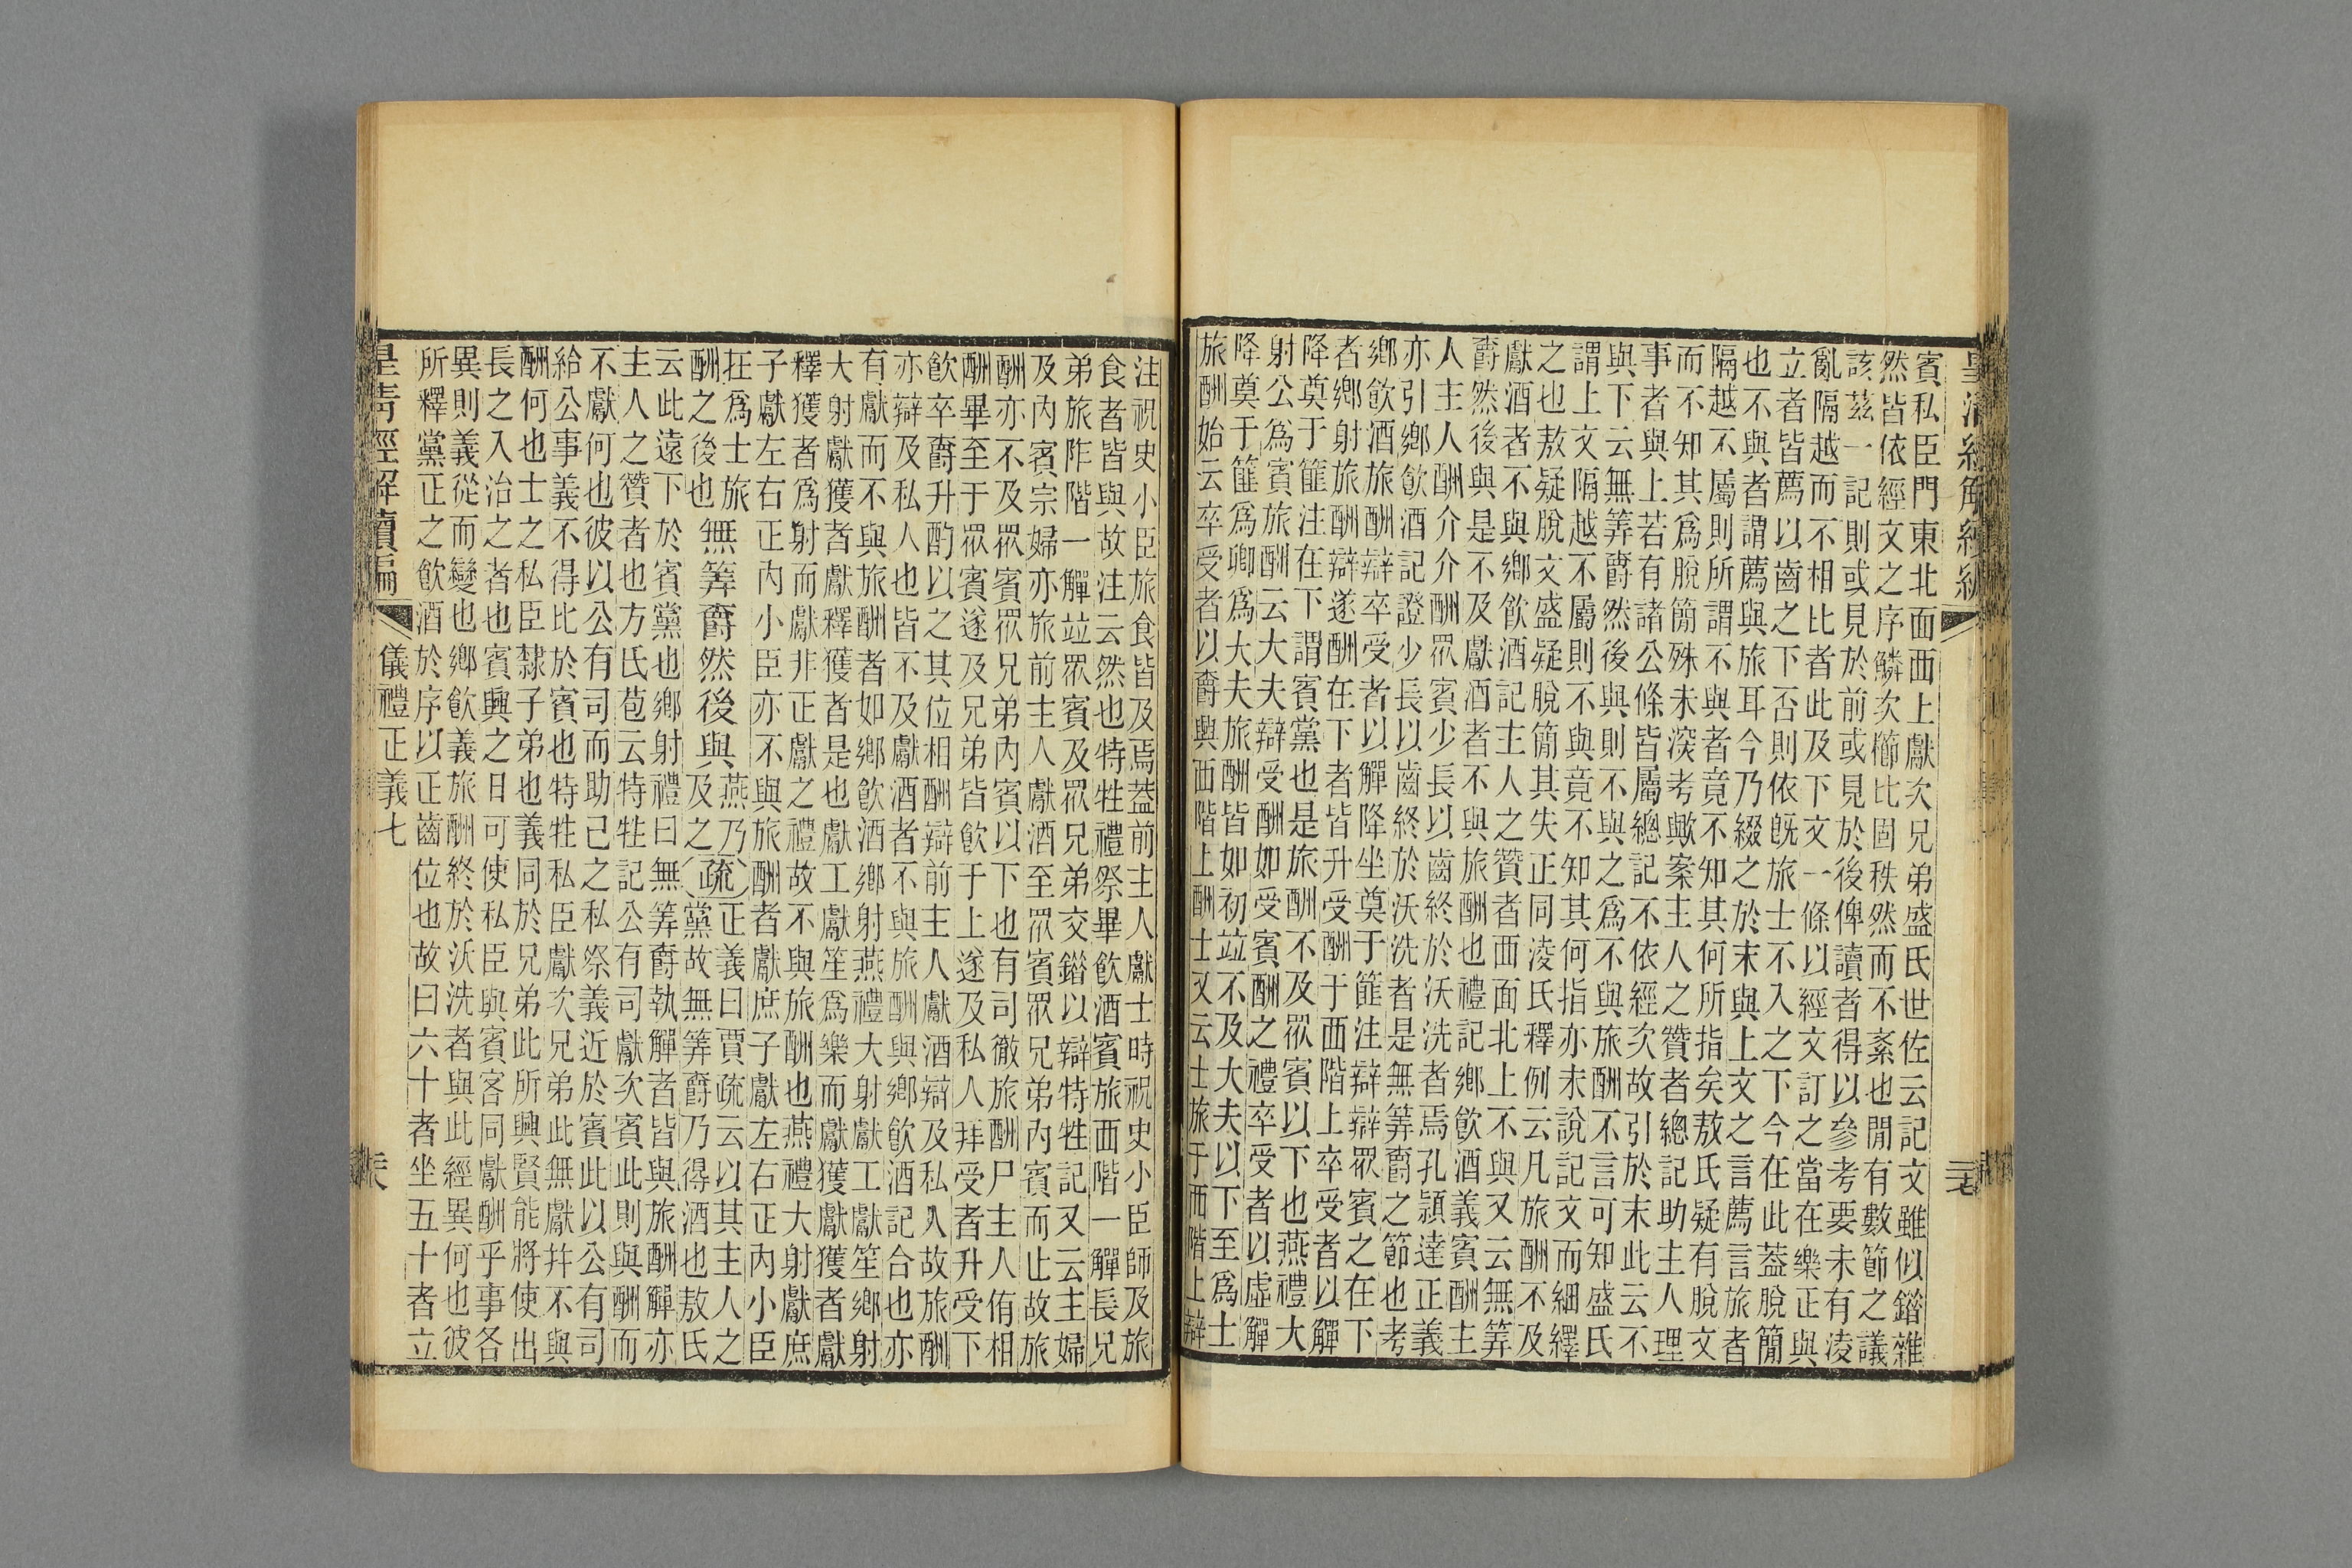 皇清經解續編
賓私臣門東北面西上獻次兄弟盛氏世佐云記文雖似錯雜
然皆依經文之序鱗次櫛比固秩然而不紊也閒有數節之議
該茲一記則或見於前或見於後俾讀者得以參考要未有淩
亂隔越而不相比者此及下文一條以經文訂之當在樂正與
立者皆薦以齒之下否則依旣旅士不入之下今在此葢脫簡
也不與者謂薦與旅耳今乃綴之於末與上文之言薦言旅者
隔越不屬則所謂不與者竟不知其何所指矣敖氏疑有脫文
而不知其爲脫簡殊未深考歟案主人之贊者總記助主人理
事者與上若有諸公條皆屬總記不依經次故引於末此云不
與下云無筭爵然後與則不與之爲不與旅酬不言可知盛氏
謂上文隔越不屬則不與竟不知其何指亦未說記文而細繹
之也敖疑脫文盛疑脫簡其失正同淩氏釋例云凡旅酬不及
獻酒者不與鄉飲酒記主人之贊者西面北上不與又云無筭
爵然後與是不及獻酒者不與旅酬也禮記鄉飲酒義賓酬主
人主人酬介介酬眾賓少長以齒終於沃洗者焉孔穎達正義
亦引鄉飲酒記證少長以齒終於沃洗者是無筭爵之節也考
鄉飲酒旅酬辯卒受者以觶降坐奠于篚注辯辯眾賓之在下
者鄉射旅酬辯遂酬在下者皆升受酬于西階上卒受者以觶
降奠于篚注在下謂賓黨也是旅酬不及眾賓以下也燕禮大
射公爲賓旅酬云大夫辯受酬如受賓酬之禮卒受者以虛觶
降奠于篚爲卿爲大夫旅酬皆如初竝不及大夫以下至爲士
旅酬始云卒受者以爵興西階上酬士又云士旅于西階上辯
注祝史小臣旅食皆及焉葢前主人獻士時祝史小臣師及旅
食者皆與故注云然也特牲禮祭畢飲酒賓旅西階一觶長兄
弟旅阼階一觶竝眾賓及眾兄弟交錯以辯特牲記又云主婦
及內賓宗婦亦旅前主人獻酒至眾賓眾兄弟內賓而止故旅
酬亦不及眾賓眾兄弟內賓以下也有司徹旅酬尸主人侑相
酬畢至于眾賓遂及兄弟皆飲于上遂及私人拜受者升受下
飲卒爵升酌以之其位相酬辯前主人獻酒辯及私人故旅酬
亦辯及私人也皆不及獻酒者不與旅酬與鄉飲酒記合也亦
有獻而不與旅酬者如鄉飲酒鄉射燕禮大射獻工獻笙鄉射
大射獻獲者獻釋獲者是也獻工獻笙爲樂而獻獲獻獲者獻
釋獲者爲射而獻非正獻之禮故不與旅酬也燕禮大射獻庶
子獻左右正內小臣亦不與旅酬者獻庶子獻左右正內小臣
在爲士旅
酬之後也
無筭爵然後與
燕乃
及之
疏
正義曰賈疏云以其主人之
黨故無筭爵乃得酒也敖氏
云此遠下於賓黨也鄉射禮曰無筭爵執觶者皆與旅酬觶亦
主人之贊者也方氏苞云特牲記公有司獻次賓此則與酬而
不獻何也彼以公有司而助己之私祭義近於賓此以公有司
給公事義不得比於賓也特牲私臣獻次兄弟此無獻幷不與
酬何也士之私臣隸子弟也義同於兄弟此所興賢能將使出
長之入治之者也賓興之日可使私臣與賓客同獻酬乎事各
異則義從而變也鄉飲義旅酬終於沃洗者與此經異何也彼
所釋黨正之飲酒於序以正齒位也故曰六十者坐五十者立
皇清經解續編
儀禮正義七